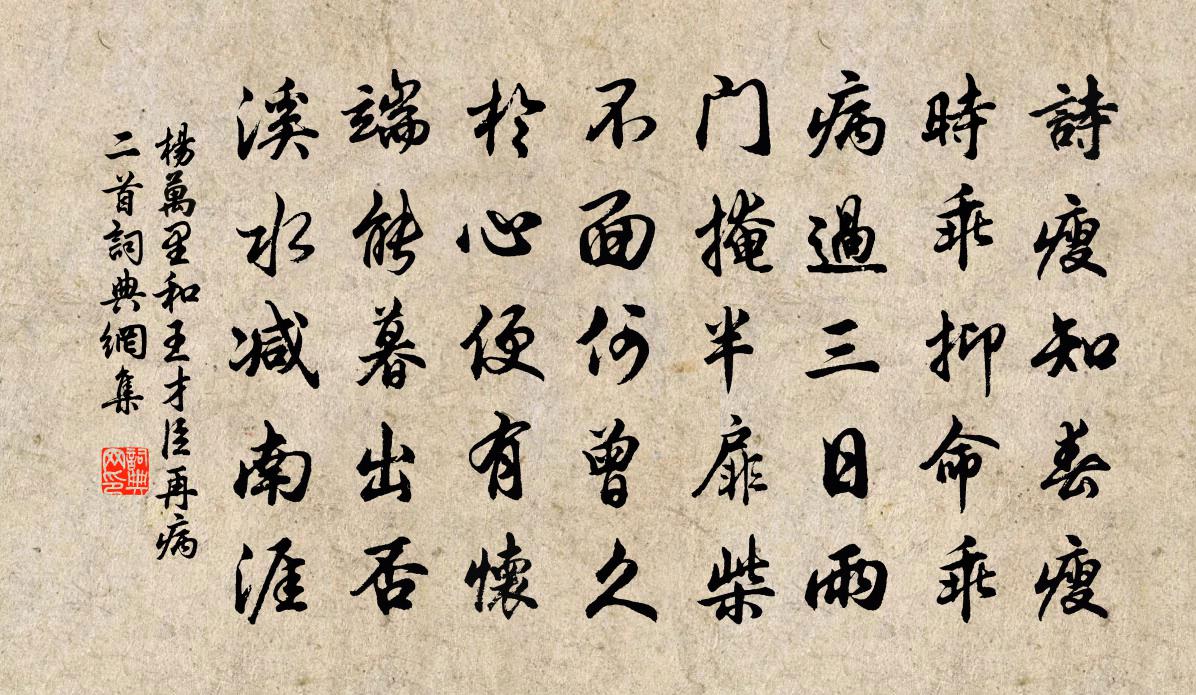 詩瘦知春瘦
時乖抑命乖
病過三日雨
門掩半扉柴
不面何曾久
於心便有懷
端能暮出否
溪水減南涯
楊萬里和王才臣再病
二首詞典網集
詞典
网印